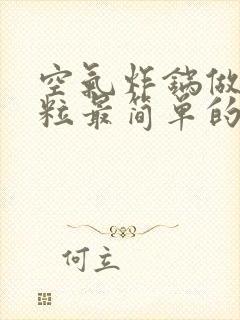 空氣炸鍋做
粒最简單的
何立